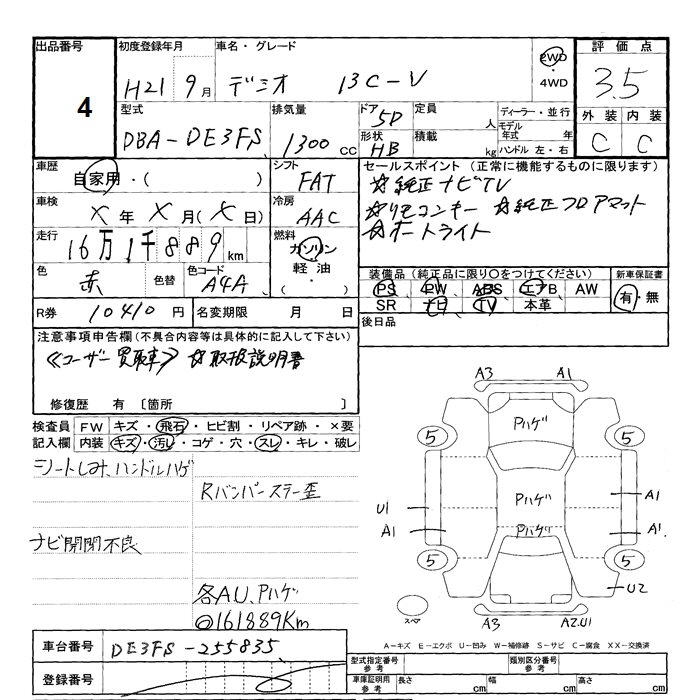 出品番号 初度登録年月 車名・グレード 評価点
4 H21 9月 デミオ 13C-V 2WD・4WD 3.5
型式 排気量 ドア 5D 定員 人 ディーラー・並行 外装 内装
DBA-DE3FS 1300 CC 形状 HB 積載 kg モデル年式 年 ハンドル 左・右 C C
車歴 自家用・( ) シフト FAT セールスポイント (正常に機能するものに限ります)
☆純正ナビTV
車検 X年 X月(X日) 冷房 AAC ☆リモコンキー ☆純正フロアマット
走行 16万1千889km 燃料 ガソリン 軽油 ・( ) ☆オートライト
色 赤 色替 色コード A4A 装備品 (純正品に限り○をつけてください) 新車保証書
PS PW ABS エアB AW 有・無
R券 10410円 名変期限 月 日 SR ナビ TV 本革
注意事項申告欄(不具合内容等は具体的に記入して下さい) 後日品
≪ユーザー買取車≫ ☆取扱説明書
修復歴 有 〔箇所 〕
検査員 FW キズ・飛石・ヒビ割・リペア跡・×要
記入欄 内装 キズ・汚レ・コゲ・穴・スレ・キレ・破レ
シートしみ、ハンドルハゲ
Rバンパーステー歪
ナビ開閉不良
各AU、Pハゲ
◎161889Km
A3 A1
Pハゲ
5 5
Pハゲ
U1 A1
A1 Pハゲ A1
5 5
U2
スペア A3 A2.U1
A-キズ E-エクボ U-凹み W-補修跡 S-サビ C-腐食 XX-交換済
車台番号 DE3FS-255835
登録番号
型式指定番号 参考 類別区分番号 参考
車庫証明用 参考 長さ cm 幅 cm 高さ cm